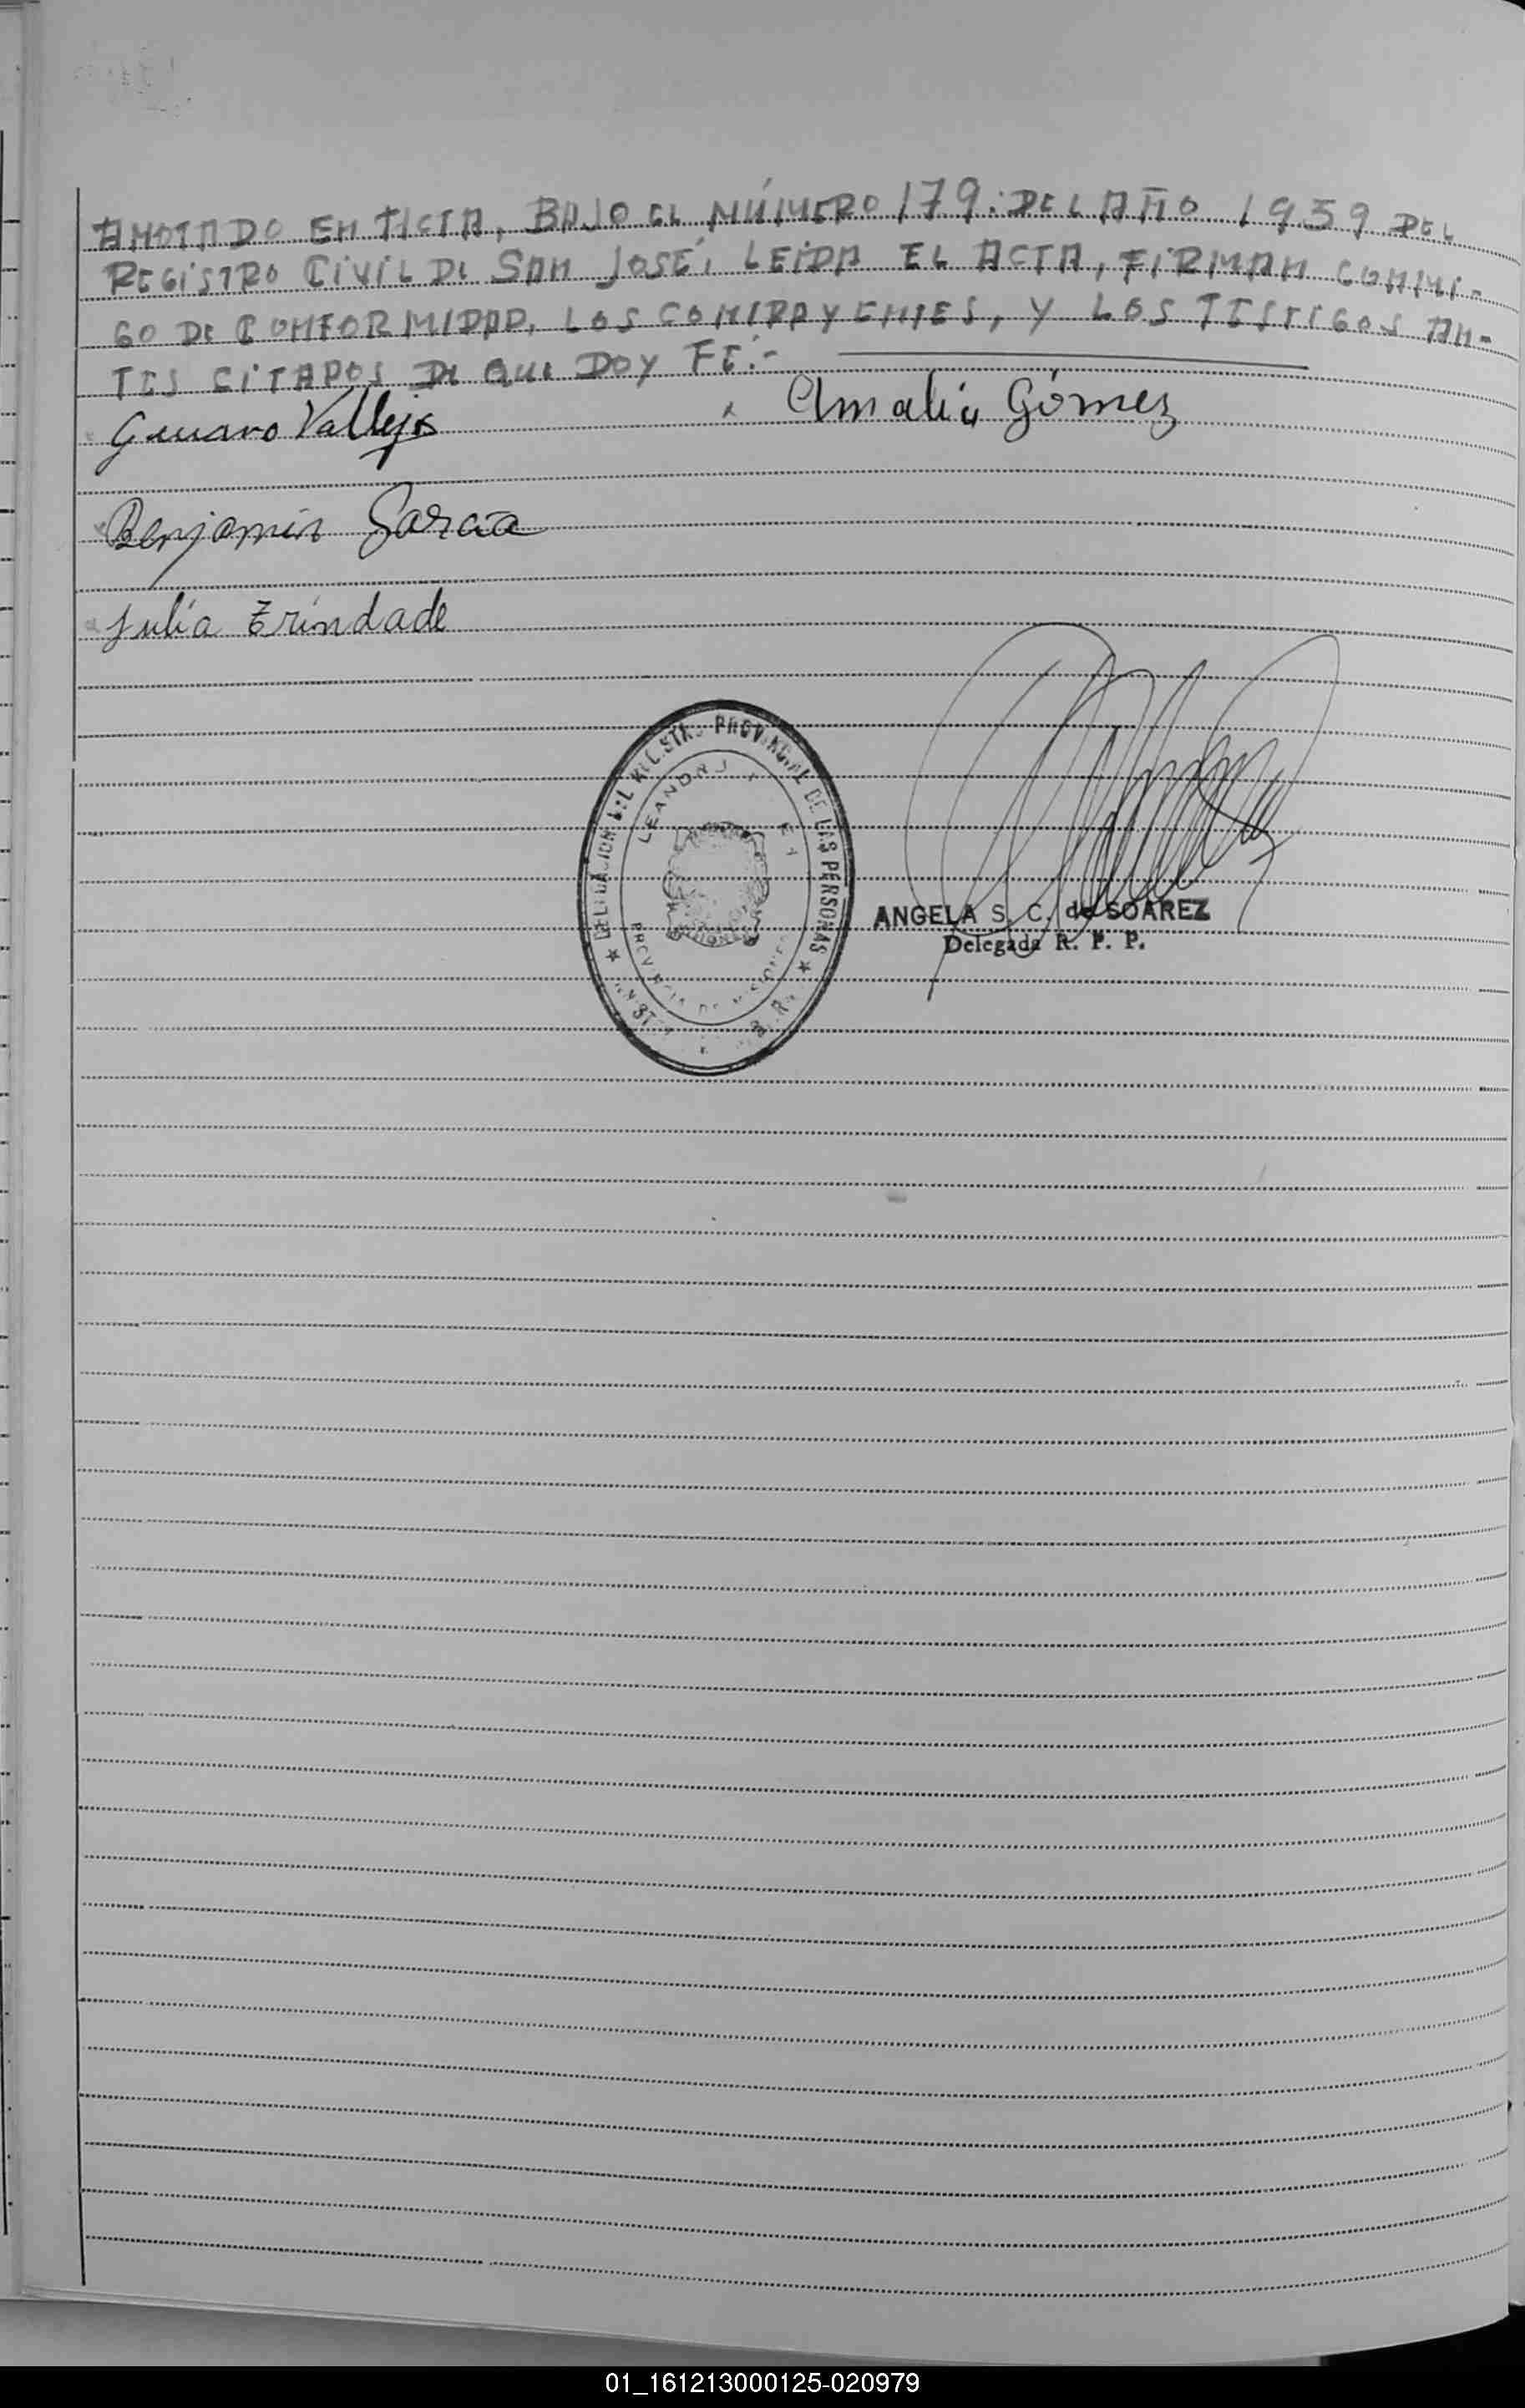 ANOTADO EN ACTA, BAJO EL NÚMERO 179. DEL AÑO 1959 DEL
REGISTRO CIVIL DE SAN JOSÉ, LEIDA EL ACTA, FIRMAN CONMI-
GO DE CONFORMIDAD, LOS CONTRAYENTES, Y LOS TESTIGOS AN-
TES CITADOS DE QUE DOY FE.-
Genaro Vallejos
Amalia Gómez
Benjamin Garcia
Julia Trindade
DELEGACION DEL REGISTRO PROVINCIAL DE LAS PERSONAS
LEANDRO
PROVINCIA DE MISIONES
MISIONES
ANGELA S. C. de SOAREZ
Delegada R. P. P.
01_161213000125-020979